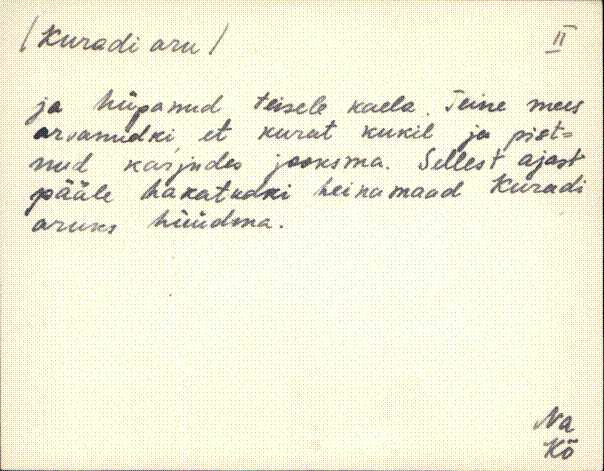 /Kuradi aru/
II
ja hüpanud teisele kaela. Teine mees
arvanudki, et kurat kukil ja pist-
nud karjudes jooksma. Sellest ajast
pääle hakatudki heinamaad Kuradi
aruks hüüdma.
Na
Kõ